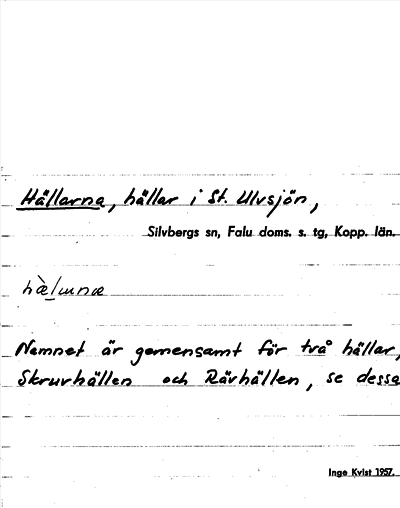 Hällarna, hällar i St. Ulvsjön,
Silvbergs sn, Falu doms. s. tg, Kopp. län.
Namnet är gemensamt för två hällar,
Skruvhällen och Rävhällen, se dessa
Inge Kvist 1957.